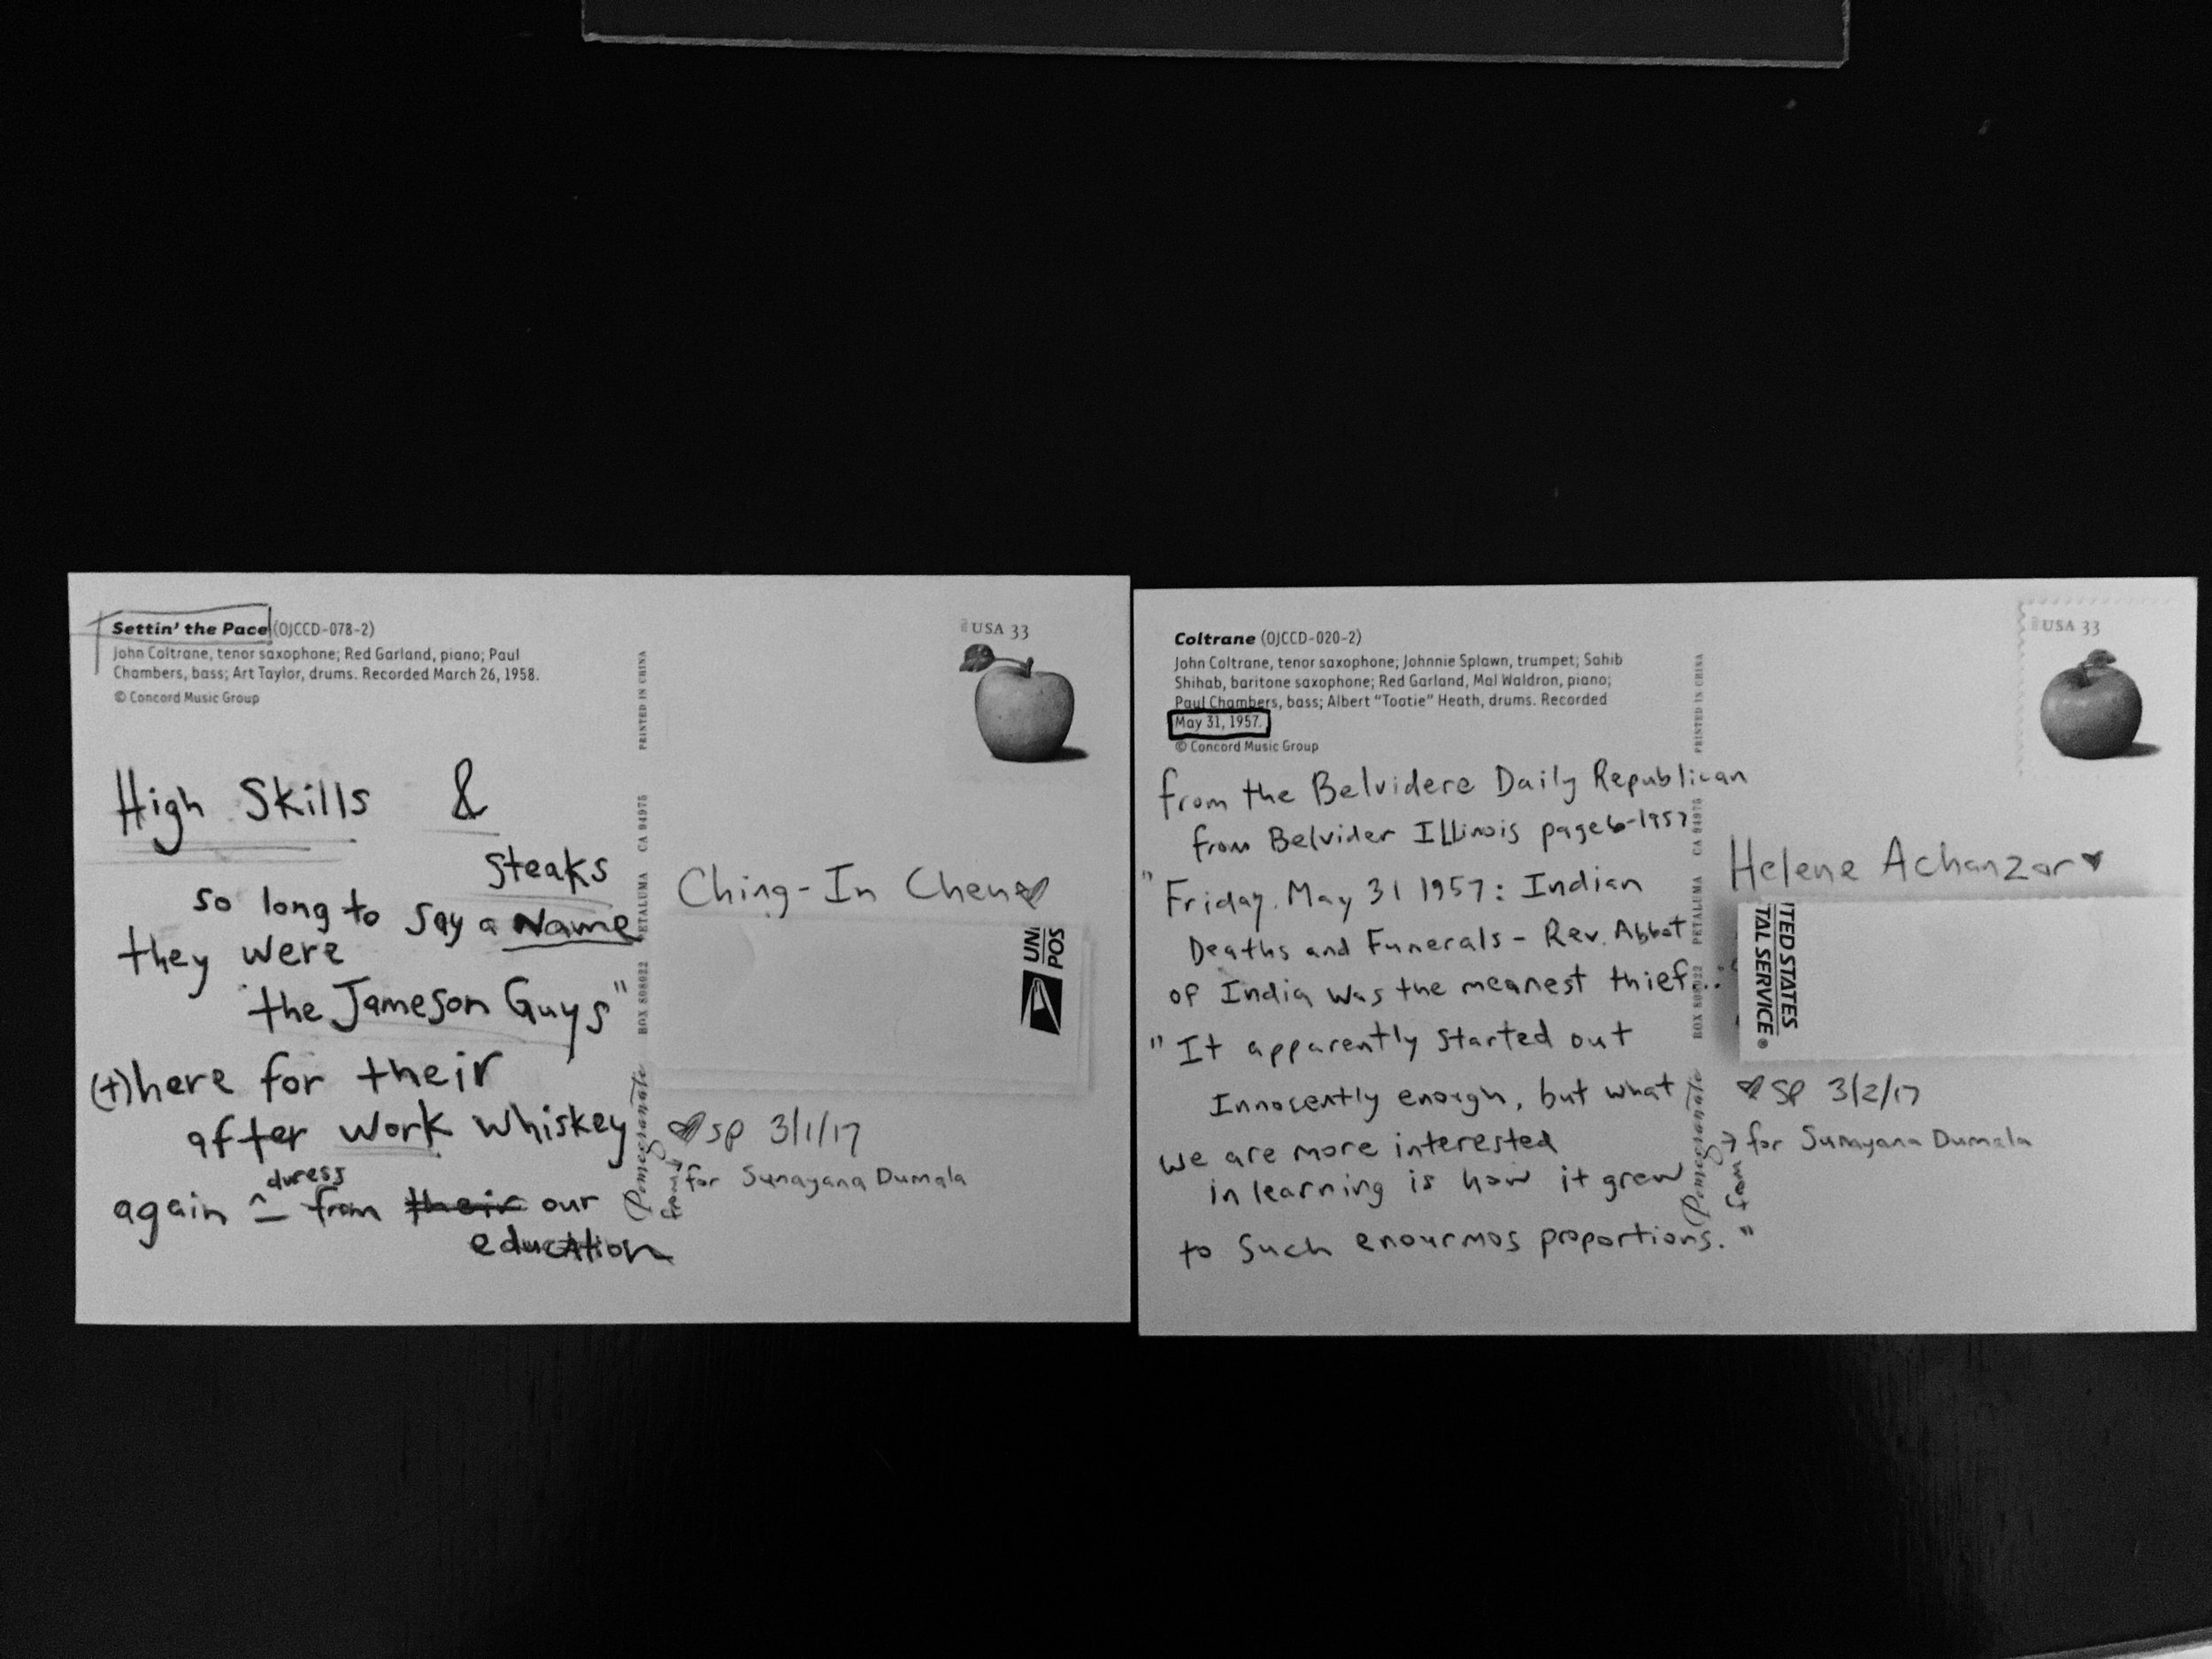 Settin' the Pace (OJCCD-078-2)
John Coltrane, tenor saxophone; Red Garland, piano; Paul
Chambers, bass; Art Taylor, drums. Recorded March 26, 1958.
© Concord Music Group
High Skills &
steaks
so long to say a Name
they were
the Jameson Guys"
(t)here for their
after work whiskey
duress
again ^ from their our
education
PRINTED IN CHINA
BOX 808022 PETALUMA CA 94975
Pomegranate
USA 33
Ching-In Chen
UNI
POS
SP 3/1/17
from → for Sunayana Dumala
Coltrane (OJCCD-020-2)
John Coltrane, tenor saxophone; Johnnie Splawn, trumpet; Sahib
Shihab, baritone saxophone; Red Garland, Mal Waldron, piano;
Paul Chambers, bass; Albert "Tootie" Heath, drums. Recorded
May 31, 1957.
© Concord Music Group
from the Belvidere Daily Republican
from Belvider Illinois page 6-1957
"Friday. May 31 1957: Indian
Deaths and Funerals - Rev. Abbot
of India was the meanest thief...
"It apparently started out
Innocently enough, but what
we are more interested
in learning is how it grew
to such enourmos proportions."
PRINTED IN CHINA
BOX 808022 PETALUMA CA 94975
Pomegranate
USA 33
Helene Achanzar
ITED STATES
TAL SERVICE®
SP 3/2/17
from → for Sunayana Dumala